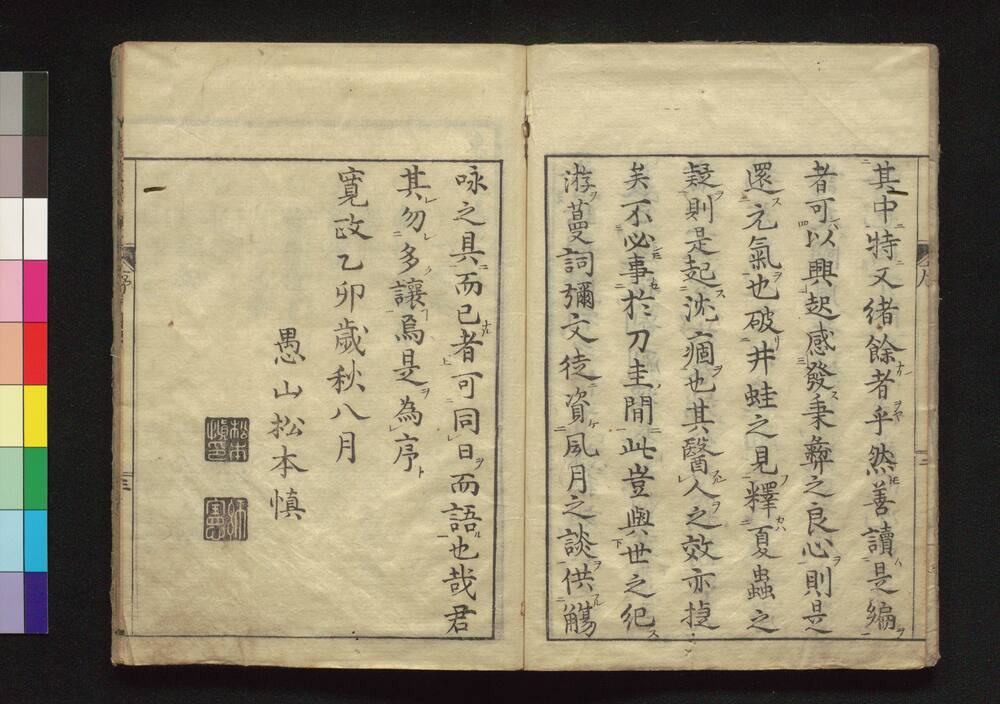 其中特又緒餘者乎然善讀是編
者可以興起感發秉彝之良心則是
還元氣也破井蛙之見釋夏蟲之
疑則是起沈痼也其醫人之效亦捷
矣不必事於刀圭間此豈與世之紀
游蔓詞彌文徒資風月之談供觴
咏之具而已者可同日而語也哉君
其勿多讓焉是為序
寬政乙卯歲秋八月
愚山松本慎
松本慎印
序
三